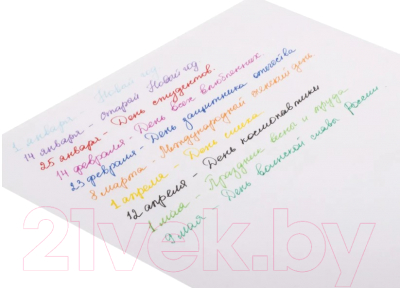 1 января - Новый год
14 января - Старый Новый год
25 января - День студентов.
14 февраля - День всех влюблённых
23 февраля - День защитника отечества
8 марта - Международный женский день
1 апреля - День смеха
12 апреля - День космонавтики
1 мая - Праздник весны и труда
9 мая - День воинской славы России
21vek.by